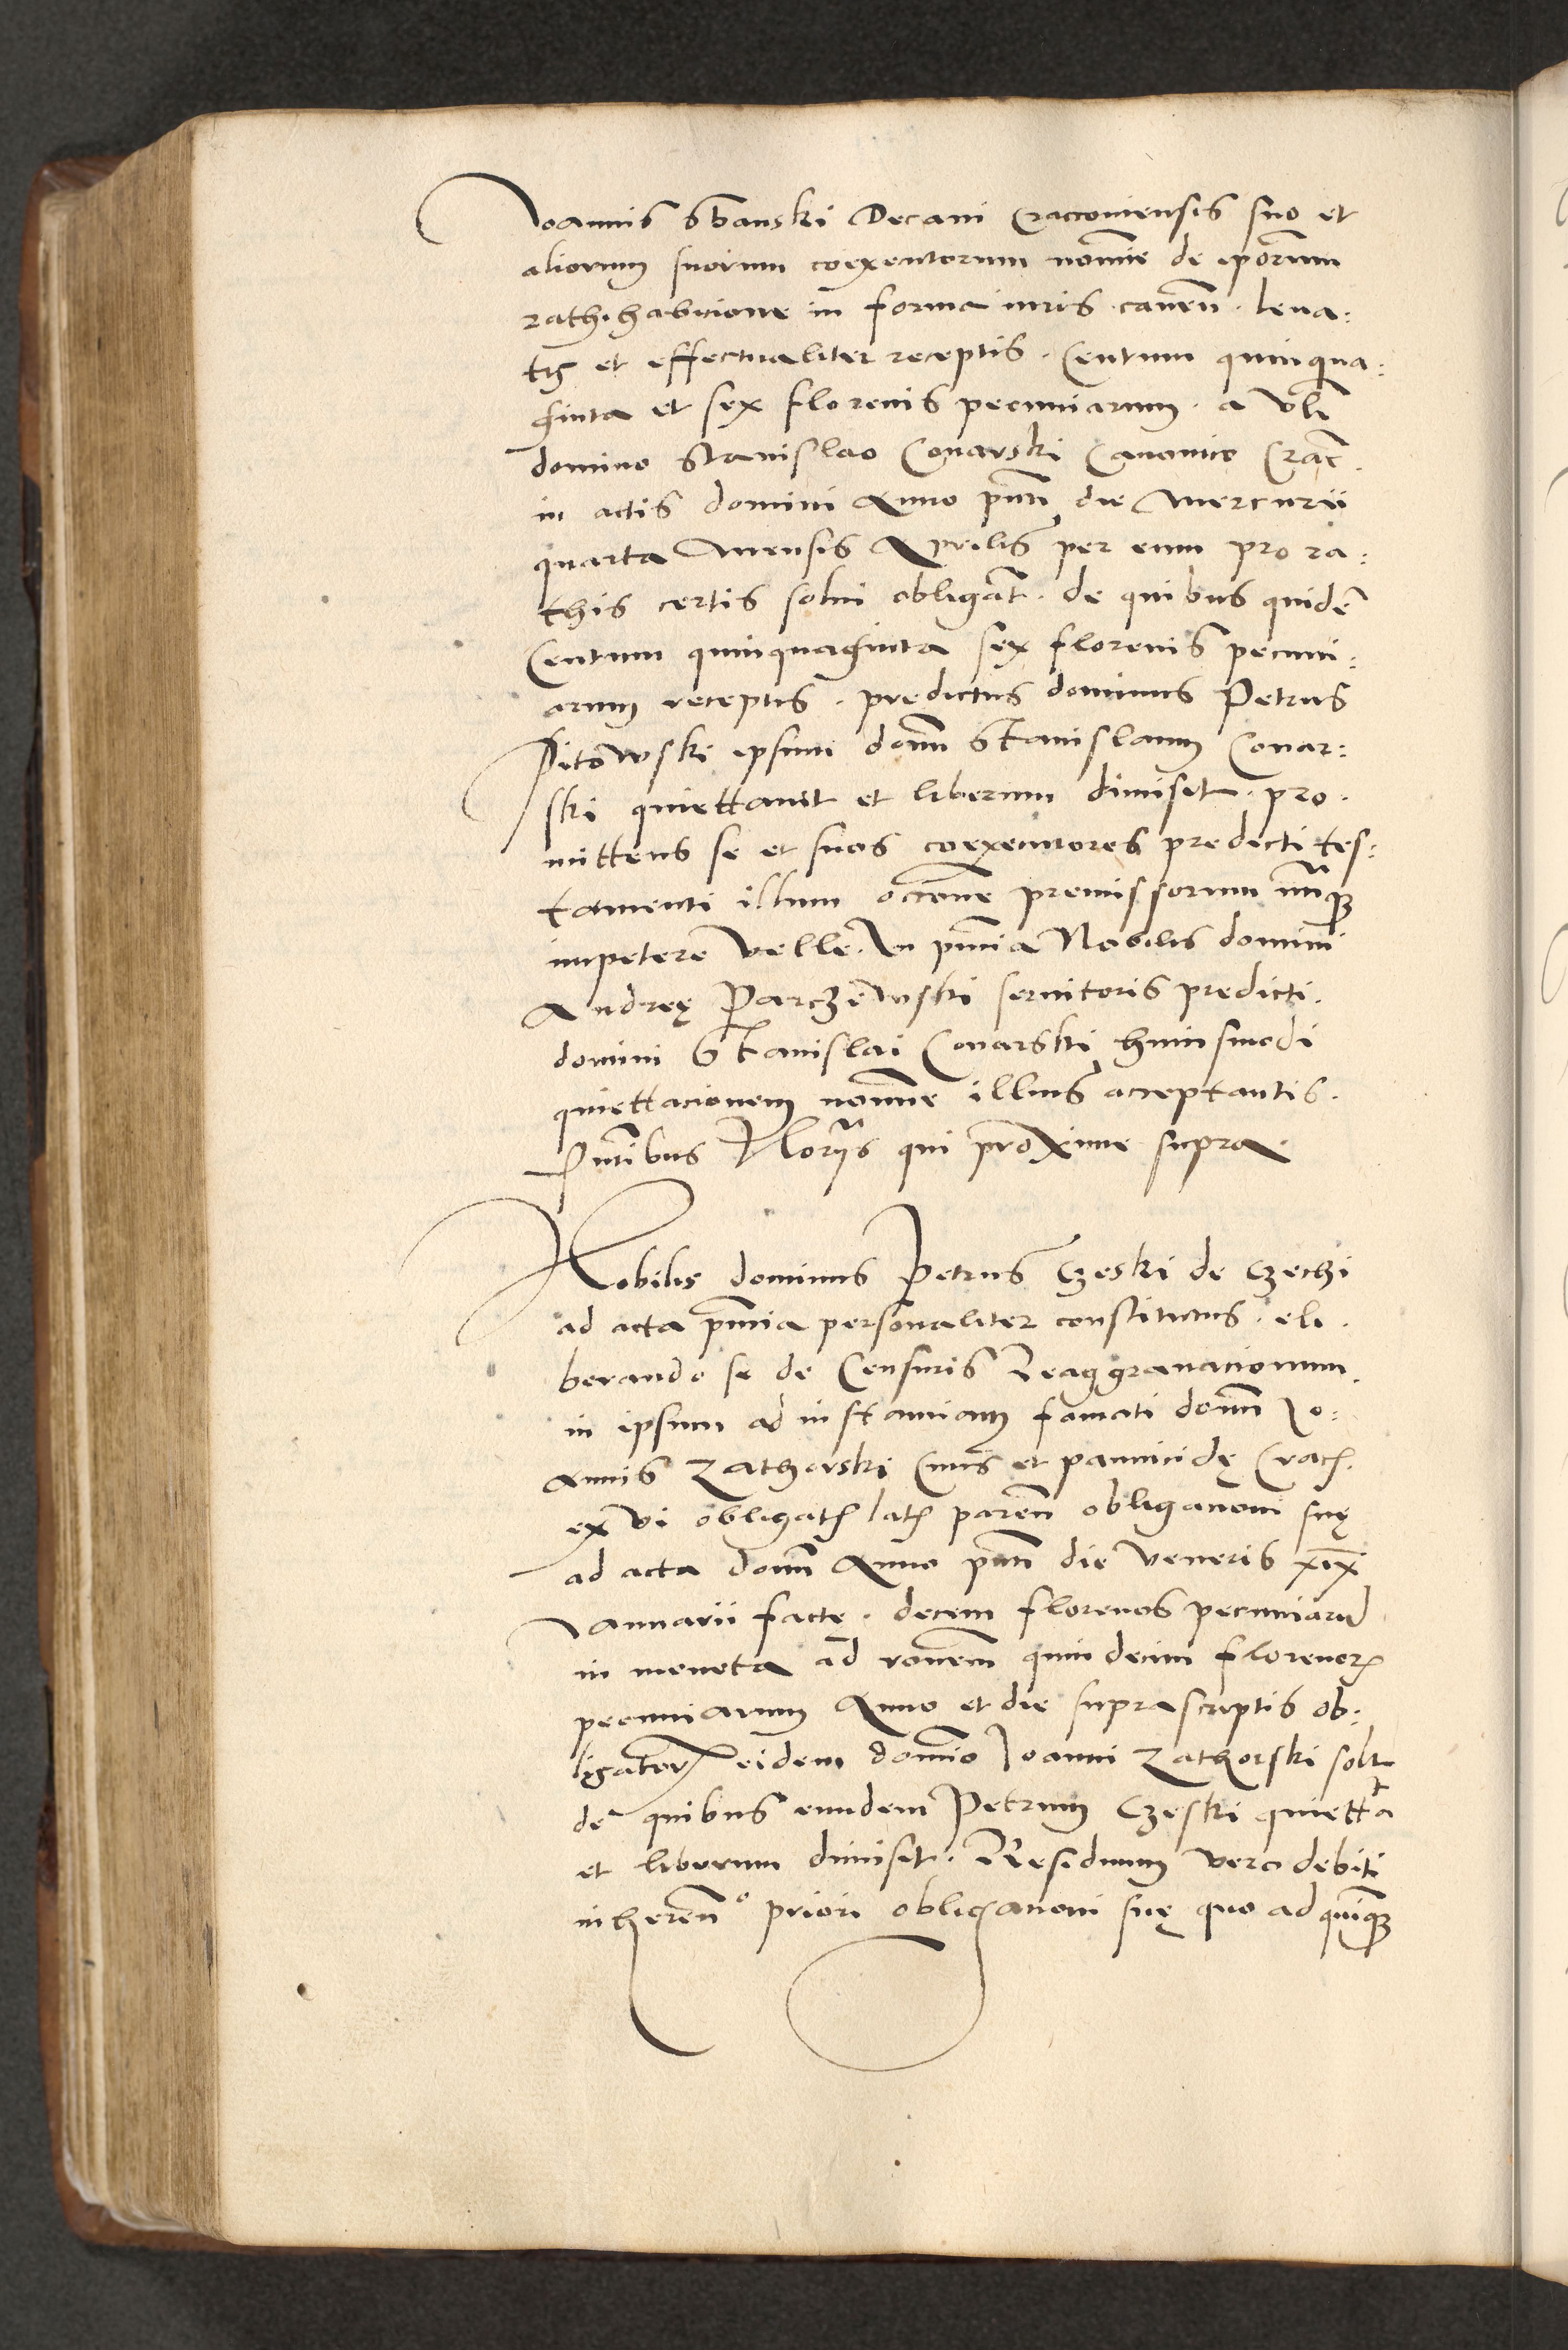 Ioannis Sbanski Decani Cracoviensis suo et
aliorum suorum coexecutorum nomine de ipsorum
rathihabicione in forma iuris caven. leva:
tis et effectualiter receptis. Centum quinqua:
ginta et sex florenis pecuniarum. a Vli
domino Stanislao Conarski Canonico Crac.
in actis domini Anno pnti die Mercurii
quarta Mensis Aprilis per eum pro ra:
this certis solvi obligat. de quibus quide
Centum quinquaginta sex florenis pecuni:
arum receptis. predictus dominus Petrus
Pitowski ipsum dom Stanislaum Conar:
ski quiettavit et liberum dimisit. pro.
mittens se et suos coexecutores predicti tes:
tamenti illum occone premissorum nunq
impetere velle. In pntia Nobilis domini
Andreę Parczewski servitoris predicti.
domini Stanislai Conarski huiusmodi
quiettacionem nomine illius acceptantis.
Pntibus Notoriis qui proxime supra.
Nobilis dominus Petrus Czeski de Czechi
ad acta pntia personaliter constitutus. eli.
berando se de Censuris Reaggravacionum.
in ipsum ad instanciam famati domi Io:
annis Zathorski Civis et pannicidę Crac.
ex vi obligat lat paren obliganoni suę
ad acta domi Anno pnti die Veneris xix
Ianuarii facte. decem florenos pecuniaru
in moneta ad ronem quindecim florenor
pecuniarum Anno et die suprascriptis ob:
ligator eidem domino Ioanni Zathorski solt
de quibus eundem Petrum Czeski quietta
et liberum dimisit. Residuum vero debiti
inheren priori obliganoni suę quo ad quinq